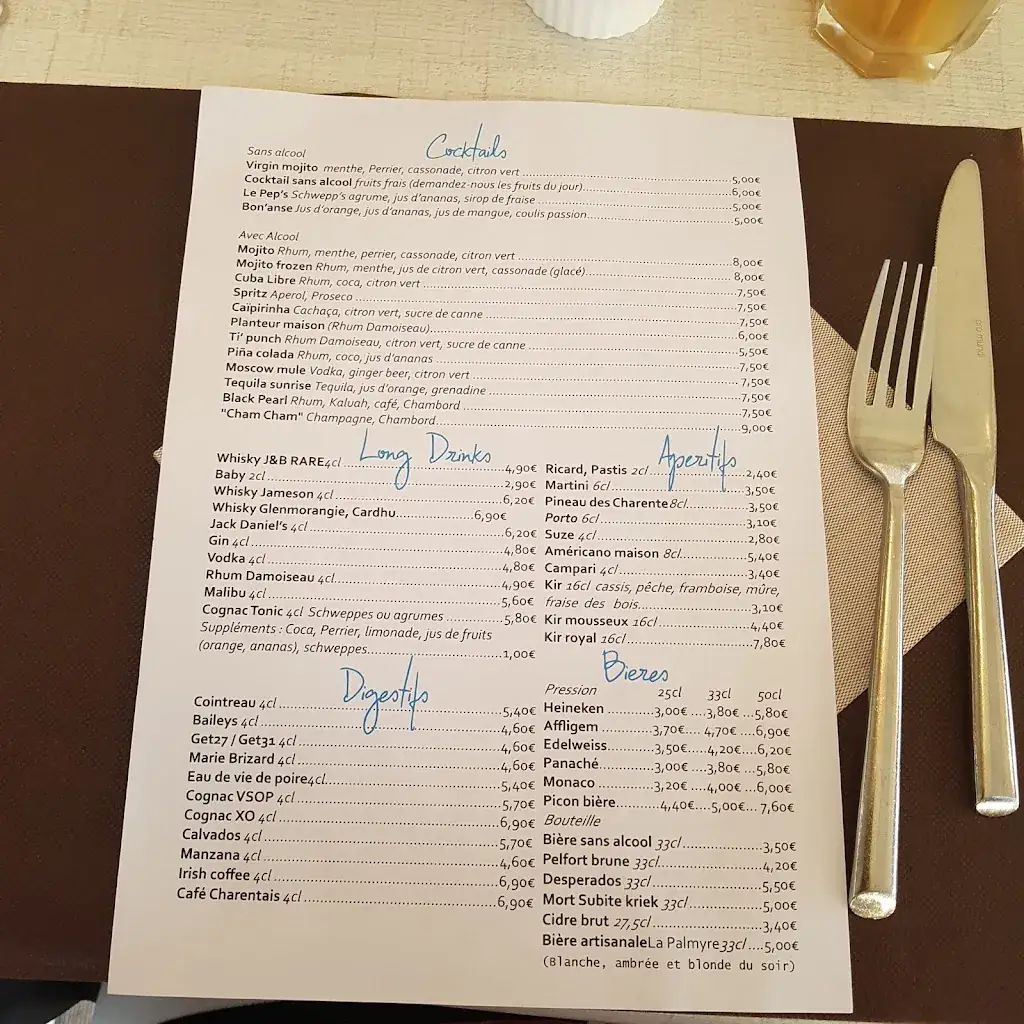 Cocktails
Sans alcool
Virgin mojito menthe, Perrier, cassonade, citron vert ...5,00€
Cocktail sans alcool fruits frais (demandez-nous les fruits du jour)...6,00€
Le Pep's Schwepp's agrume, jus d'ananas, sirop de fraise ...5,00€
Bon'anse Jus d'orange, jus d'ananas, jus de mangue, coulis passion...5,00€
Avec Alcool
Mojito Rhum, menthe, perrier, cassonade, citron vert ...8,00€
Mojito frozen Rhum, menthe, jus de citron vert, cassonade (glacé)...8,00€
Cuba Libre Rhum, coca, citron vert ...7,50€
Spritz Aperol, Proseco ...7,50€
Caïpirinha Cachaça, citron vert, sucre de canne ...7,50€
Planteur maison (Rhum Damoiseau)...6,00€
Ti' punch Rhum Damoiseau, citron vert, sucre de canne ...5,50€
Piña colada Rhum, coco, jus d'ananas ...7,50€
Moscow mule Vodka, ginger beer, citron vert ...7,50€
Tequila sunrise Tequila, jus d'orange, grenadine ...7,50€
Black Pearl Rhum, Kaluah, café, Chambord ...7,50€
"Cham Cham" Champagne, Chambord...9,00€
Long Drinks
Whisky J&B RARE4cl ...4,90€
Baby 2cl ...2,90€
Whisky Jameson 4cl ...6,20€
Whisky Glenmorangie, Cardhu...6,90€
Jack Daniel's 4cl ...6,20€
Gin 4cl ...4,80€
Vodka 4cl ...4,80€
Rhum Damoiseau 4cl...4,90€
Malibu 4cl ...5,60€
Cognac Tonic 4cl Schweppes ou agrumes ...5,80€
Suppléments : Coca, Perrier, limonade, jus de fruits
(orange, ananas), schweppes...1,00€
Digestifs
Cointreau 4cl ...5,40€
Baileys 4cl ...4,60€
Get27 / Get31 4cl ...4,60€
Marie Brizard 4cl ...4,60€
Eau de vie de poire4cl...5,40€
Cognac VSOP 4cl ...5,70€
Cognac XO 4cl ...6,90€
Calvados 4cl ...5,70€
Manzana 4cl ...4,60€
Irish coffee 4cl ...6,90€
Café Charentais 4cl ...6,90€
Aperitifs
Ricard, Pastis 2cl ...2,40€
Martini 6cl ...3,50€
Pineau des Charente8cl...3,50€
Porto 6cl ...3,10€
Suze 4cl ...2,80€
Américano maison 8cl...5,40€
Campari 4cl ...3,40€
Kir 16cl cassis, pêche, framboise, mûre,
fraise des bois...3,10€
Kir mousseux 16cl ...4,40€
Kir royal 16cl...7,80€
Bieres
Pression 25cl 33cl 50cl
Heineken ...3,00€ ....3,80€ ...5,80€
Affligem ...3,70€.... 4,70€ ...6,90€
Edelweiss...3,50€....4,20€...6,20€
Panaché...3,00€ ....3,80€ ...5,80€
Monaco ...3,20€ ....4,00€ ...6,00€
Picon bière...4,40€....5,00€... 7,60€
Bouteille
Bière sans alcool 33cl...3,50€
Pelfort brune 33cl...4,20€
Desperados 33cl...5,50€
Mort Subite kriek 33cl...5,00€
Cidre brut 27,5cl...3,40€
Bière artisanaleLa Palmyre33cl....5,00€
(Blanche, ambrée et blonde du soir)